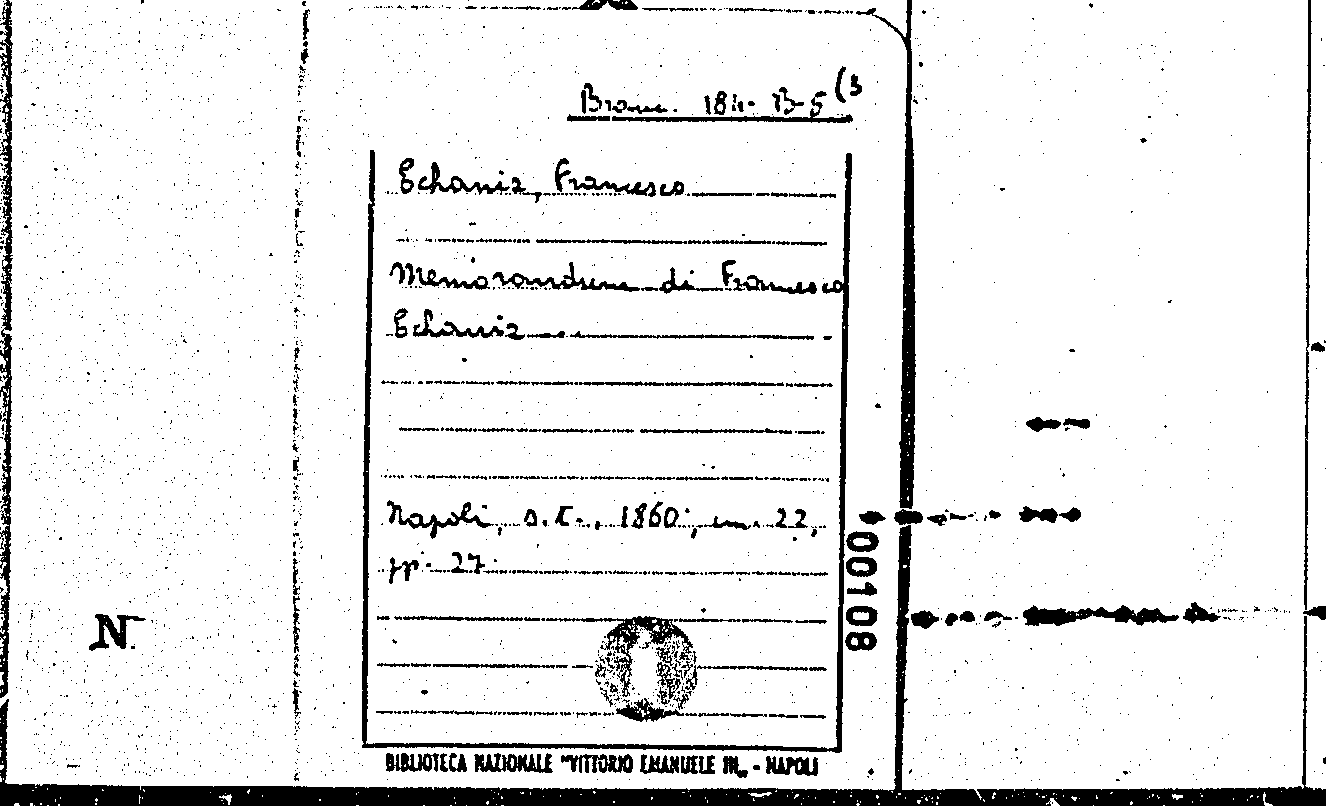 Branc. 184. B-5 (3
Echaniz, Francesco
Memorandum di Francesco
Echaniz ...
Napoli, s.t., 1860; cm. 22,
pp. 27.
00108
N
BIBLIOTECA NAZIONALE "VITTORIO EMANUELE III" - NAPOLI